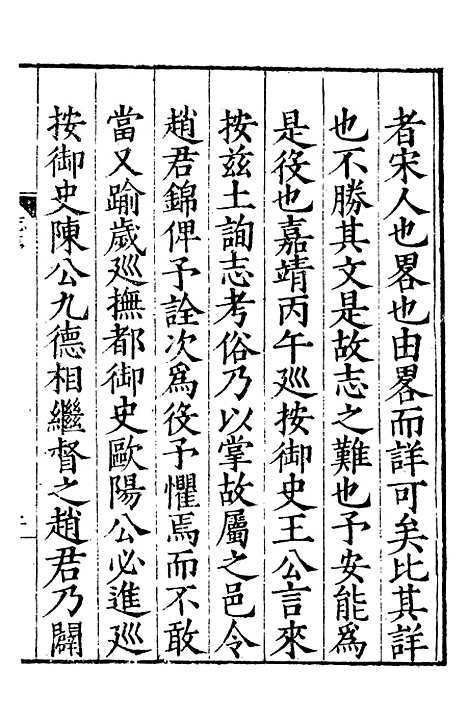 者宋人也畧也由畧而詳可矣比其詳
也不勝其文是故志之難也予安能爲
是役也嘉靖丙午廵按御史王公言來
按兹土詢志考俗乃以掌故屬之邑令
趙君錦俾予詮次爲役予懼焉而不敢
當又踰歲廵撫都御史歐陽公必進廵
按御史陳公九德相繼督之趙君乃闢